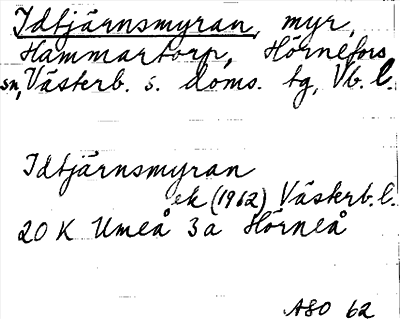 Idtjärnsmyran, myr,
Hammartorp, Hörnefors
sn, Västerb. s. doms. tg, Vb. l.
Idtjärnsmyran
ek (1962) Västerb. l.
20 K Umeå 3a Hörneå
ASO 62